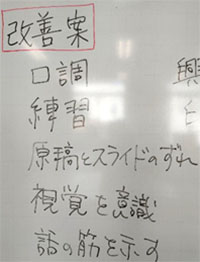 改善案
口調
練習
原稿とスライドのずれ
視覚を意識
話の筋を示す